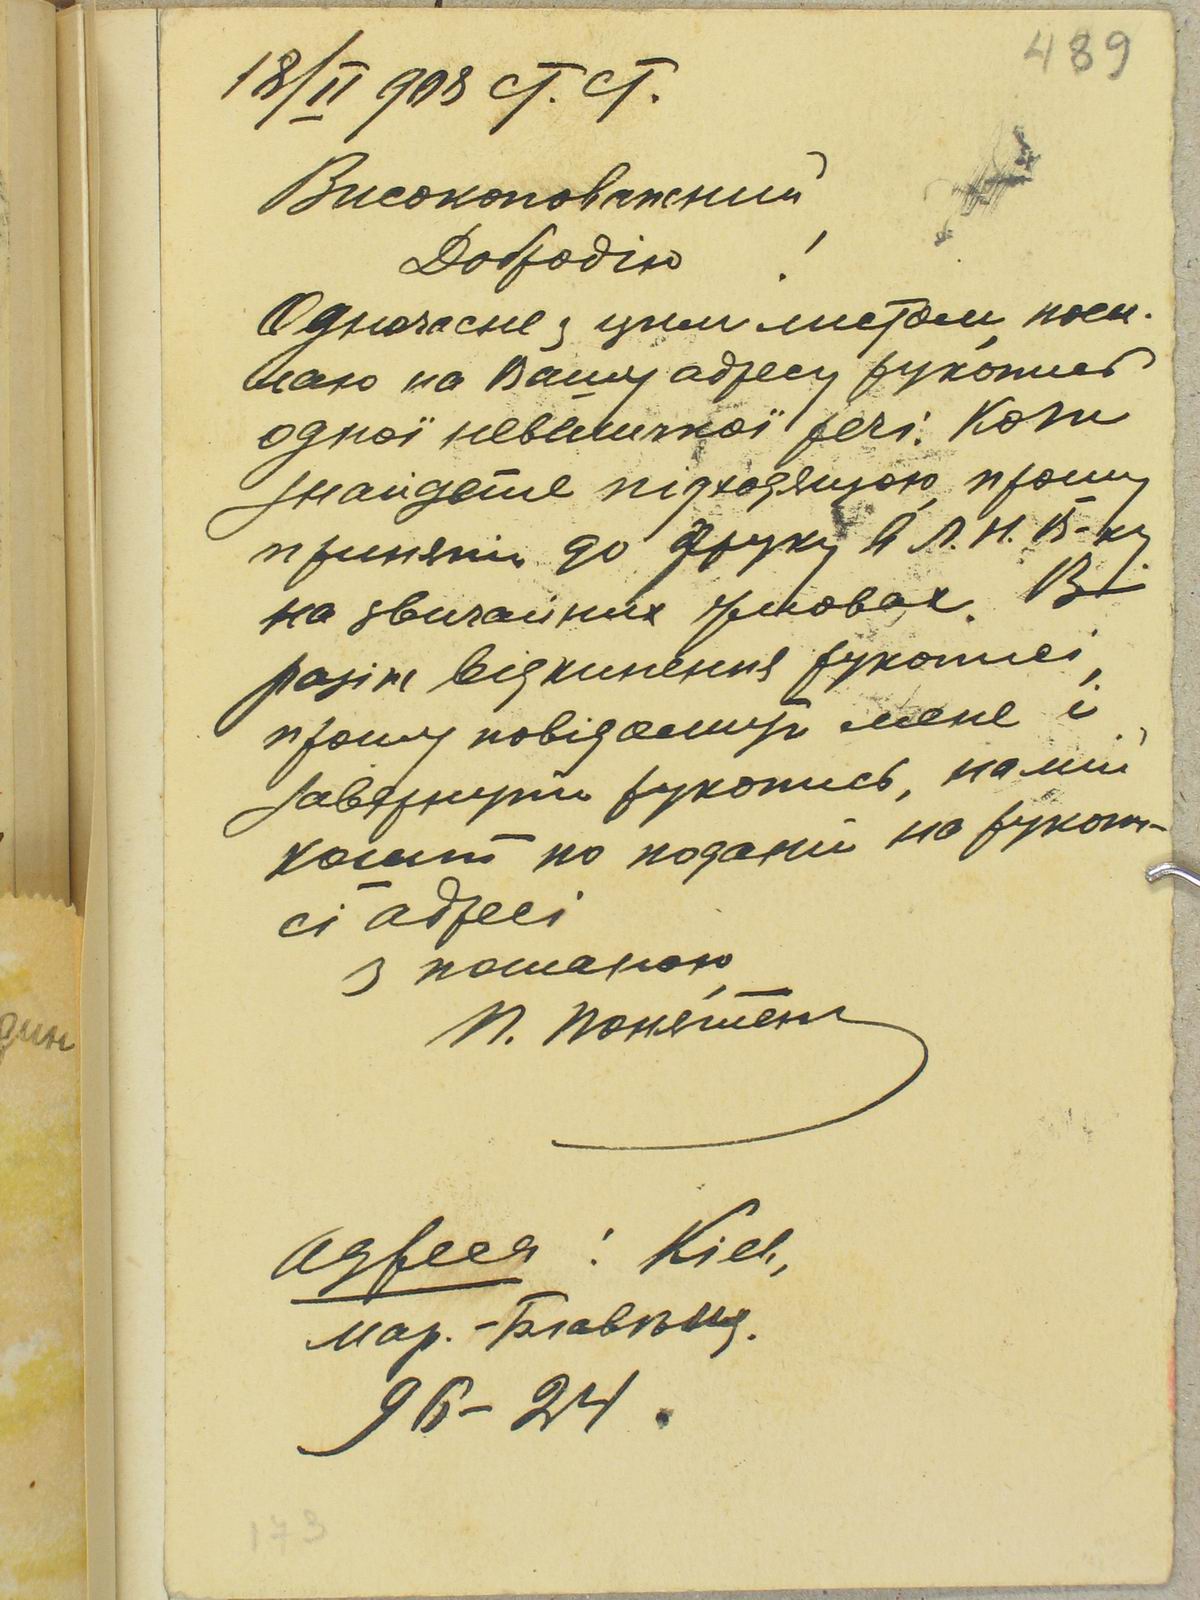 489
18/II 908 ст. ст.
Високоповажний
Добродію !
Одночасне з цим листом, поси-
лаю на Вашу адресу рукопись
одної невеличкої речі. Коли
знайдете підходящою, прошу
приняти до друку в Л. Н. В-ку
на звичайних умовах. В
разі відкинення рукописі,
прошу повідомити мене і
завернути рукопись, на мій
кошт по поданій на рукопи-
сі адресі
з пошаною
П.
Адреса : Київ,
Мар.-Благовіщ.
96 - 24.
173
дин